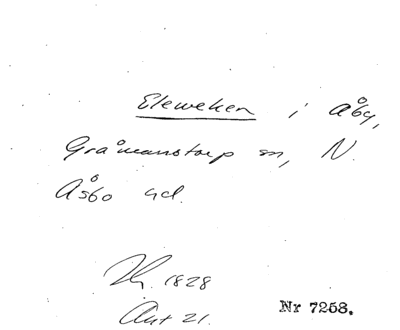 Eleweken i Åby,
Gråmanstorp sn, N.
Åsbo hd.
1828
Akt 21.
Nr 7258.